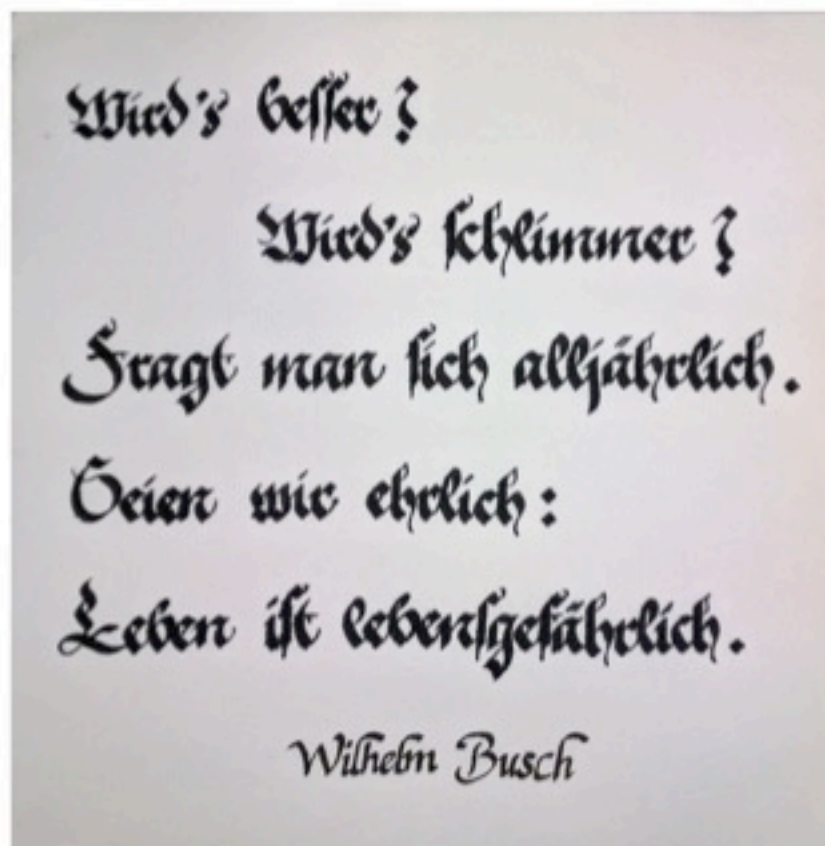 Wird's beſſer?
Wird's ſchlimmer?
Fragt man ſich alljährlich.
Seien wir ehrlich:
Leben iſt lebenſgefährlich.
Wilhelm Busch